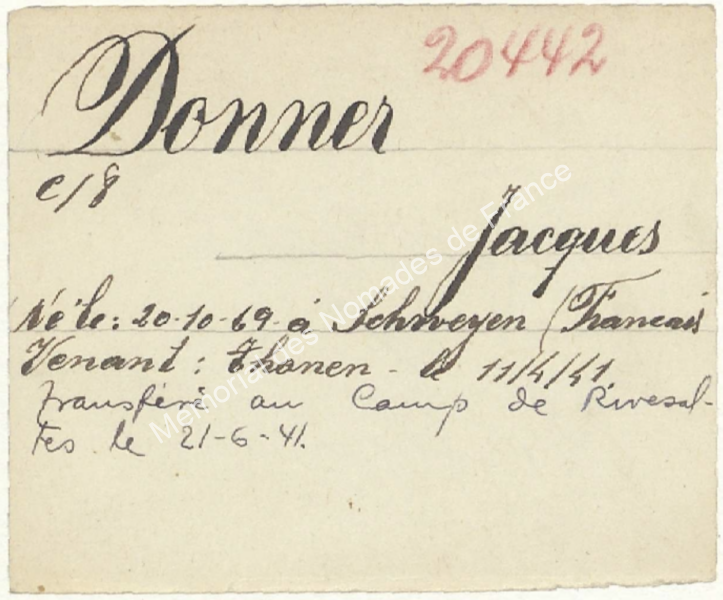 20442
Donner
c/8
Jacques
Né le: 20-10-69 à Schweyen (Francais
Venant: Thonen - le 11/4/41
transféré au Camp de Rivesal-
tes le 21-6-41.
Mémorial des Nomades de France